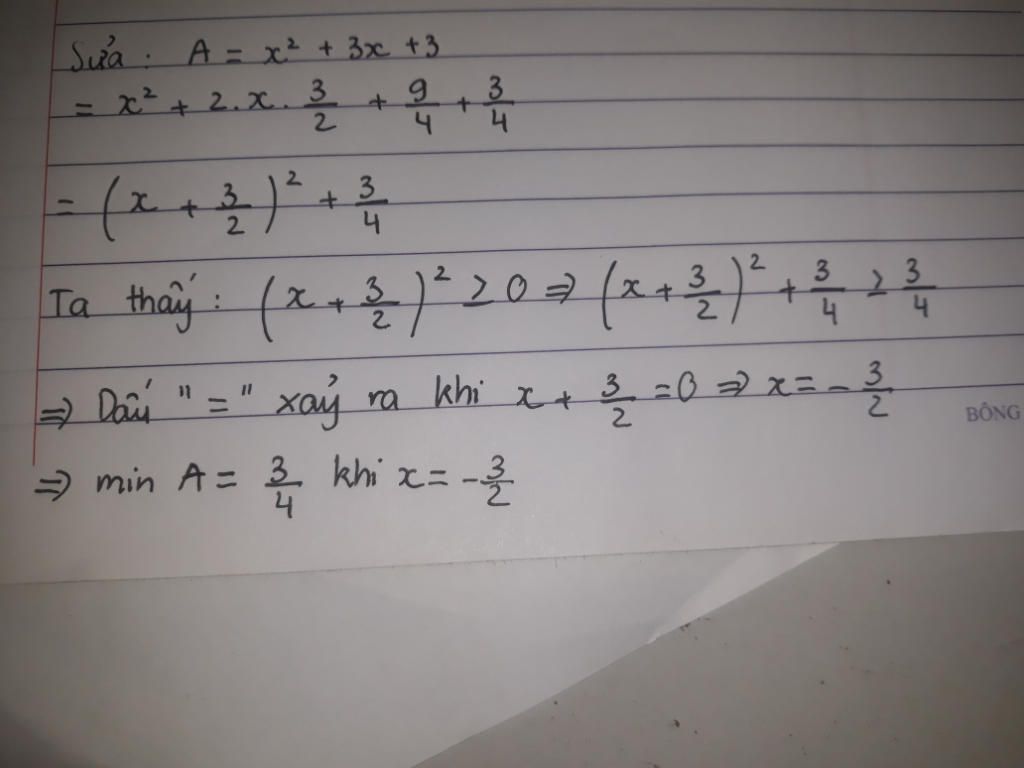 Sửa : A = x² + 3x + 3
= x² + 2.x. 3/2 + 9/4 + 3/4
= (x + 3/2)² + 3/4
Ta thấy : (x + 3/2)² ≥ 0 ⇒ (x + 3/2)² + 3/4 ≥ 3/4
⇒ Dấu "=" xảy ra khi x + 3/2 = 0 ⇒ x = - 3/2
BÔNG
⇒ min A = 3/4 khi x = - 3/2